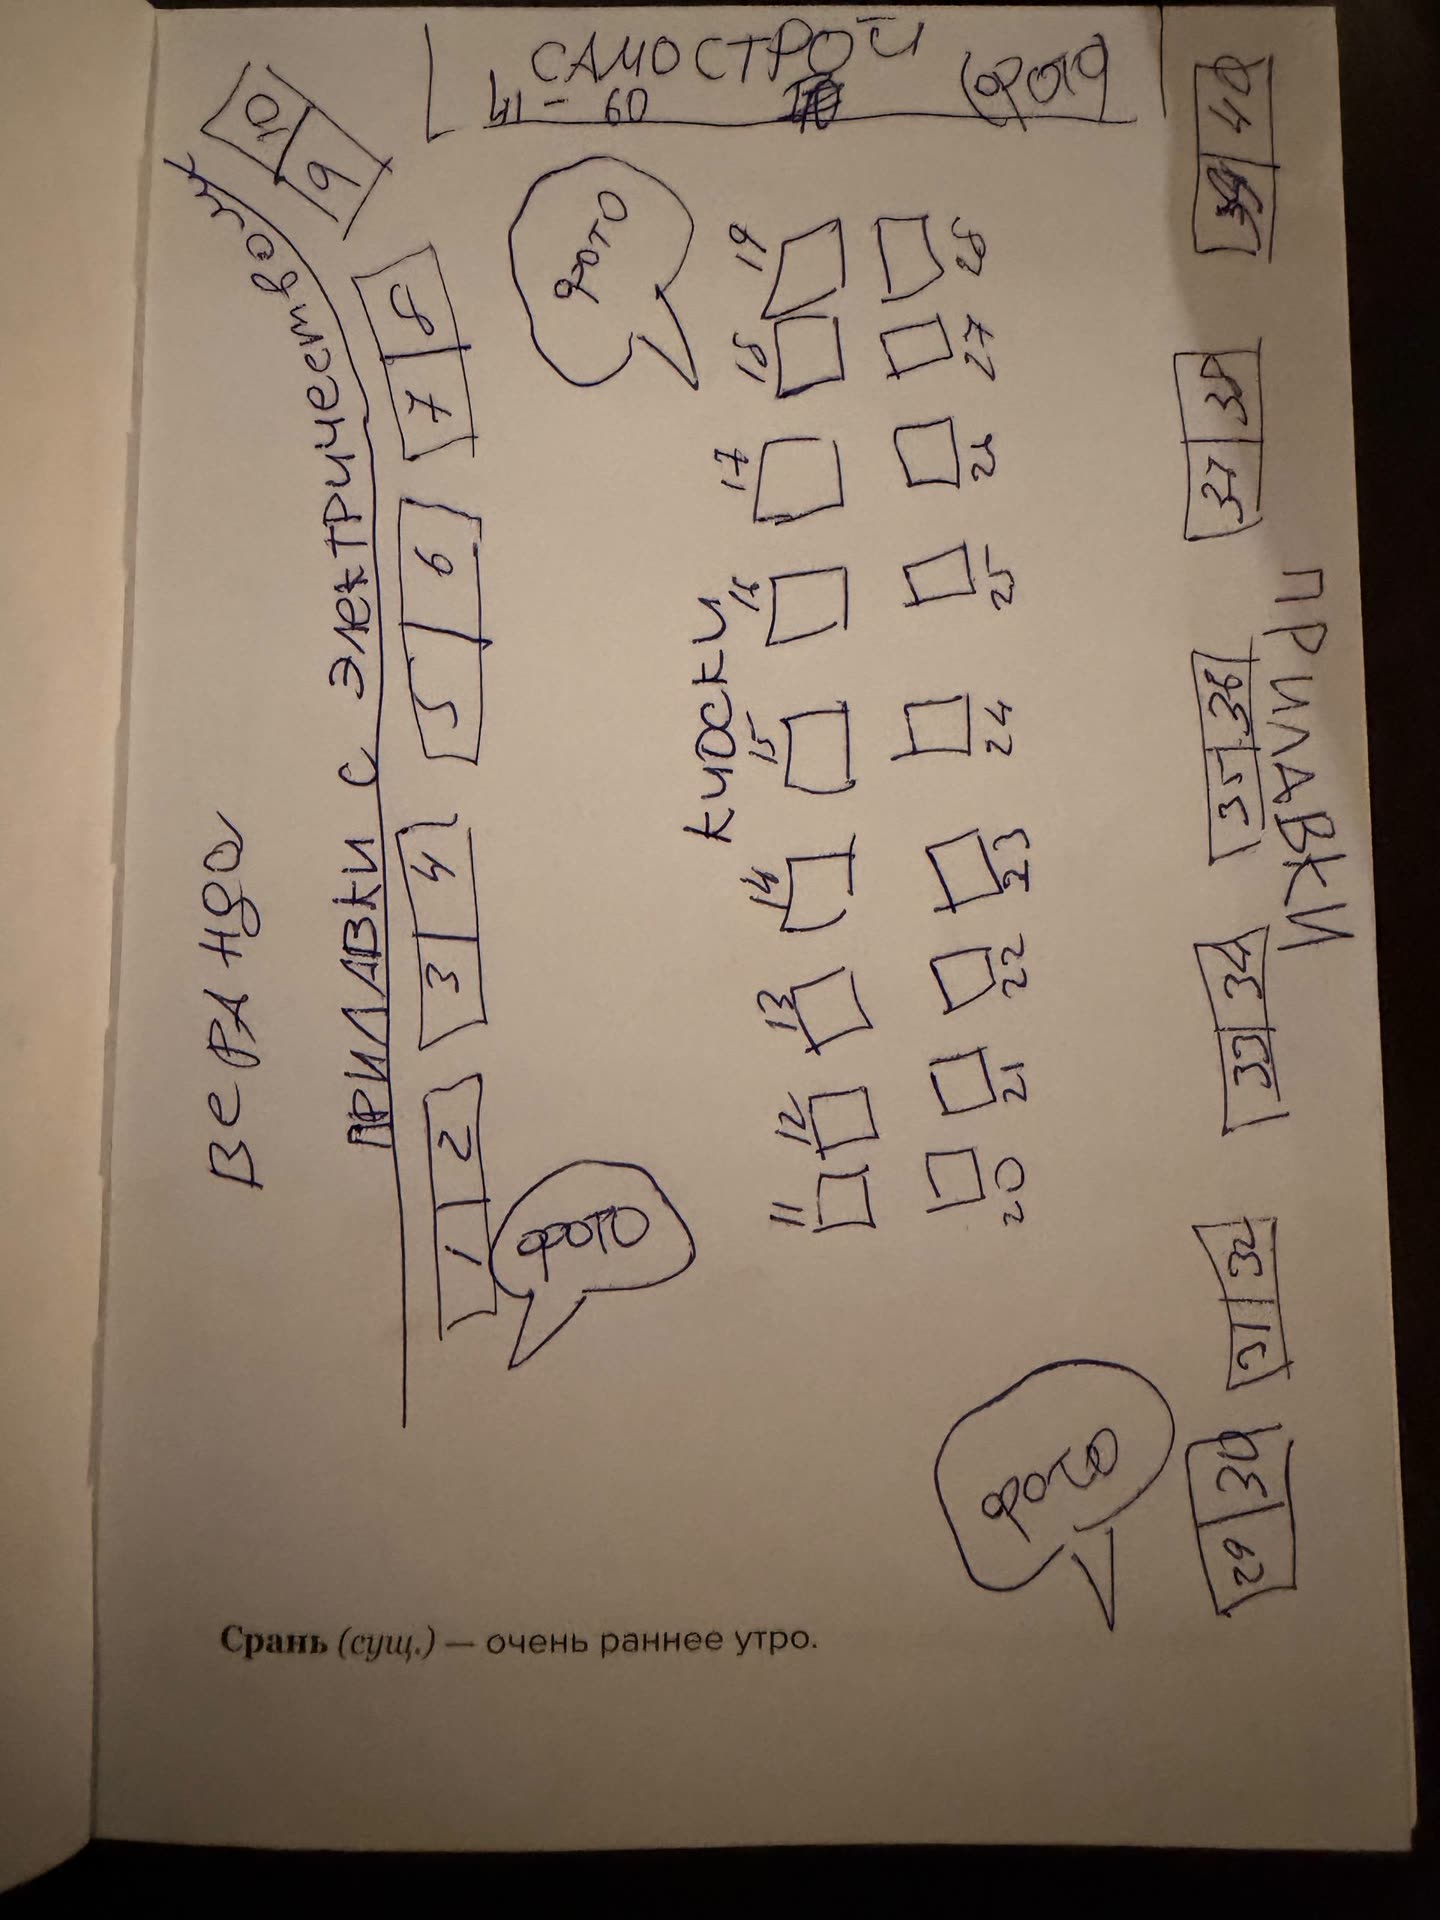 Веранда
ПРИЛАВКИ С ЭЛЕКТРИЧЕСТВОМ
1 2 3 4 5 6 7 8 9 10
ФОТО
ФОТО
КИОСКИ
11 12 13 14 15 16 17 18 19
20 21 22 23 24 25 26 27 28
ФОТО
29 30 31 32 33 34 35 36 37 38 39 40
ПРИЛАВКИ
САМОСТРОЙ
41 - 60
Срань (сущ.) — очень раннее утро.